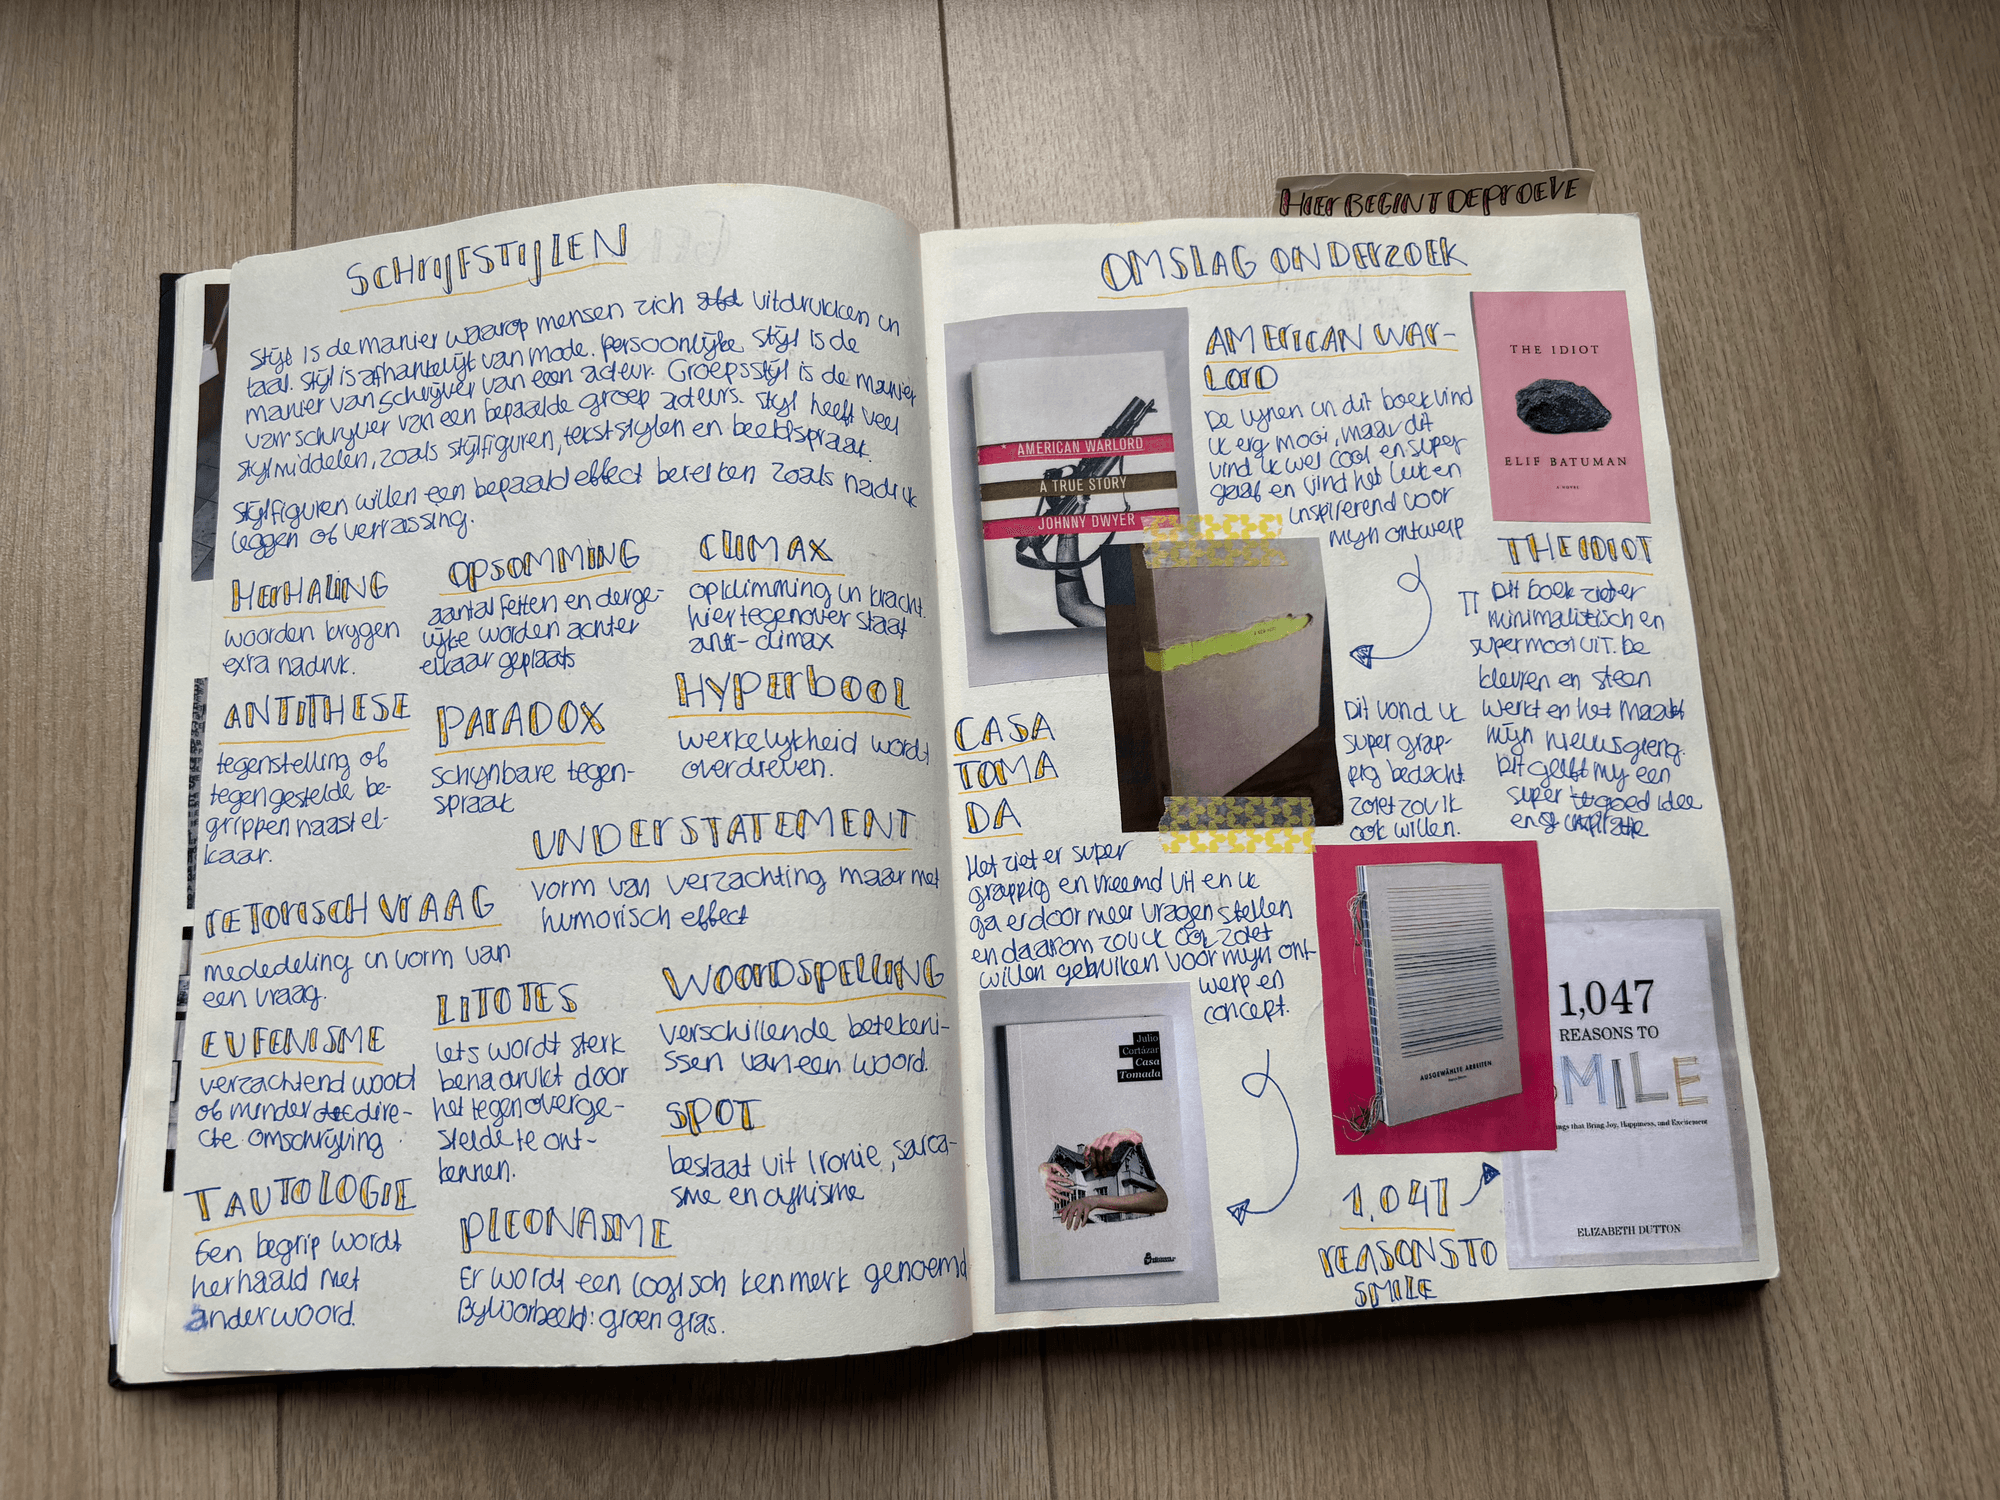 SCHRIJFSTIJLEN
Stijl is de manier waarop mensen zich uitdrukken in
taal. Stijl is afhankelijk van mode. Persoonlijke stijl is de
manier van schrijver van een auteur. Groepsstijl is de manier
van schrijver van een bepaalde groep auteurs. Stijl heeft veel
stijlmiddelen, zoals stijlfiguren, tekststijlen en beeldspraak.
Stijlfiguren willen een bepaald effect bereiken zoals nadruk
leggen of verrassing.
HERHALING
woorden krijgen
extra nadruk.
OPSOMMING
aantal feiten en derge-
lijke worden achter
elkaar geplaats
CLIMAX
opklimming in kracht.
hier tegenover staat
anti-climax
ANTITHESE
tegenstelling of
tegen gestelde be-
grippen naast el-
kaar.
PARADOX
schijnbare tegen-
spraak
HYPERBOOL
werkelijkheid wordt
overdreven.
UNDERSTATEMENT
vorm van verzachting maar met
humorisch effect
RETORISCH VRAAG
mededeling in vorm van
een vraag.
EUFENISME
verzachtend woord
of minder dire-
cte omschrijving
LITOTES
iets wordt sterk
benadrukt door
het tegenoverge-
stelde te ont-
kennen.
WOORDSPELLING
verschillende beteken-
issen van een woord.
SPOT
bestaat uit ironie, sarca-
sme en cynisme
TAUTOLOGIE
Een begrip wordt
herhaald met
ander woord.
PLEONASME
Er wordt een logisch kenmerk genoemd
Bijvoorbeeld: groen gras.
HIER BEGINT DE PROEVE
OMSLAG ONDERZOEK
AMERICAN WARLORD
A TRUE STORY
JOHNNY DWYER
AMERICAN WAR-
LORD
De lijnen in dit boek vind
ik erg mooi, maar dit
vind ik wel cool en super
gaaf en vind het leuk en
inspirerend voor
mijn ontwerp
THE IDIOT
ELIF BATUMAN
A NOVEL
THE IDIOT
Dit boek ziet er
minimalistisch en
super mooi uit. De
kleuren en steen
werkt en het maakt
mijn nieuwsgierig.
Dit geeft mij een
super goed idee
en inspiratie
Dit vond ik
super grap-
pig bedacht.
zoiets zou ik
ook willen.
CASA
TOMA
DA
Het ziet er super
grappig en vreemd uit en ik
ga er door meer vragen stellen
en daarom zou ik ook zoiets
willen gebruiken voor mijn ont-
werp en
concept.
Julio
Cortázar
Casa
Tomada
AUSGEWÄHLTE ARBEITEN
1,047
REASONS TO
SMILE
ings that Bring Joy, Happiness, and Excitement
ELIZABETH DUTTON
1,047
REASONS TO
SMILE